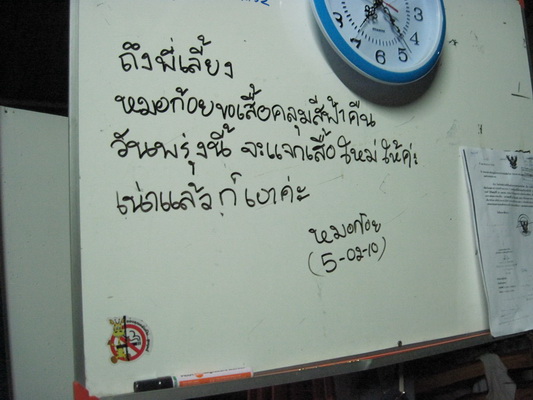 ถึงพี่เลี้ยง
หมอก้อยขอเสื้อคลุมสีฟ้าคืน
วันพรุ่งนี้ จะแจกเสื้อใหม่ให้ค่ะ
แล้วก็ เอาค่ะ
หมอก้อย
(5-02-10)